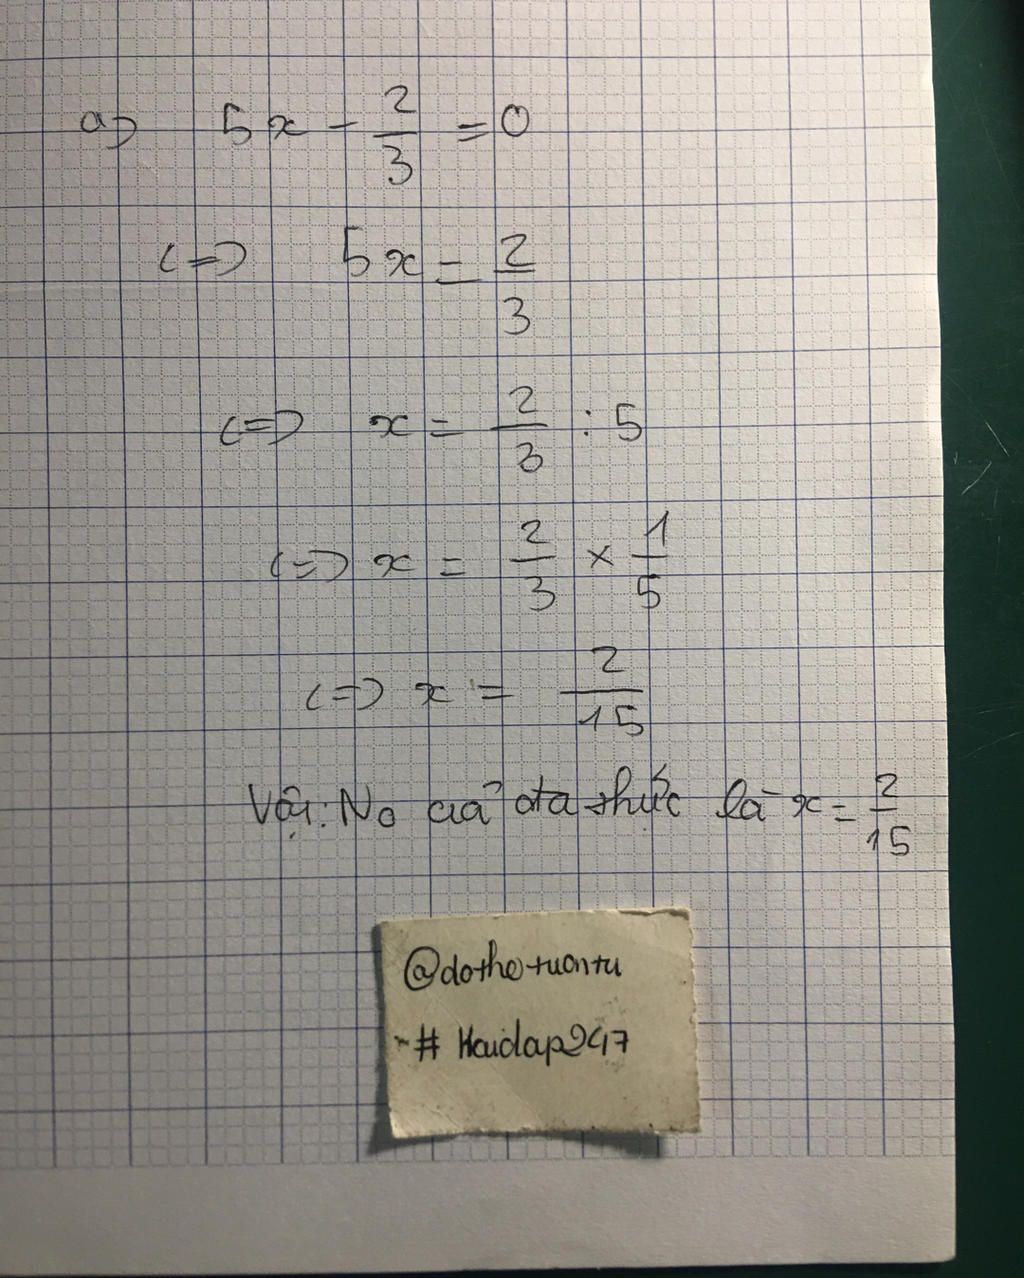 a) 5x - 2/3 = 0
<=> 5x = 2/3
<=> x = 2/3 : 5
<=> x = 2/3 × 1/5
<=> x = 2/15
Vậy: No của đa thức là x = 2/15
@dothetuantu
# Hoidap247